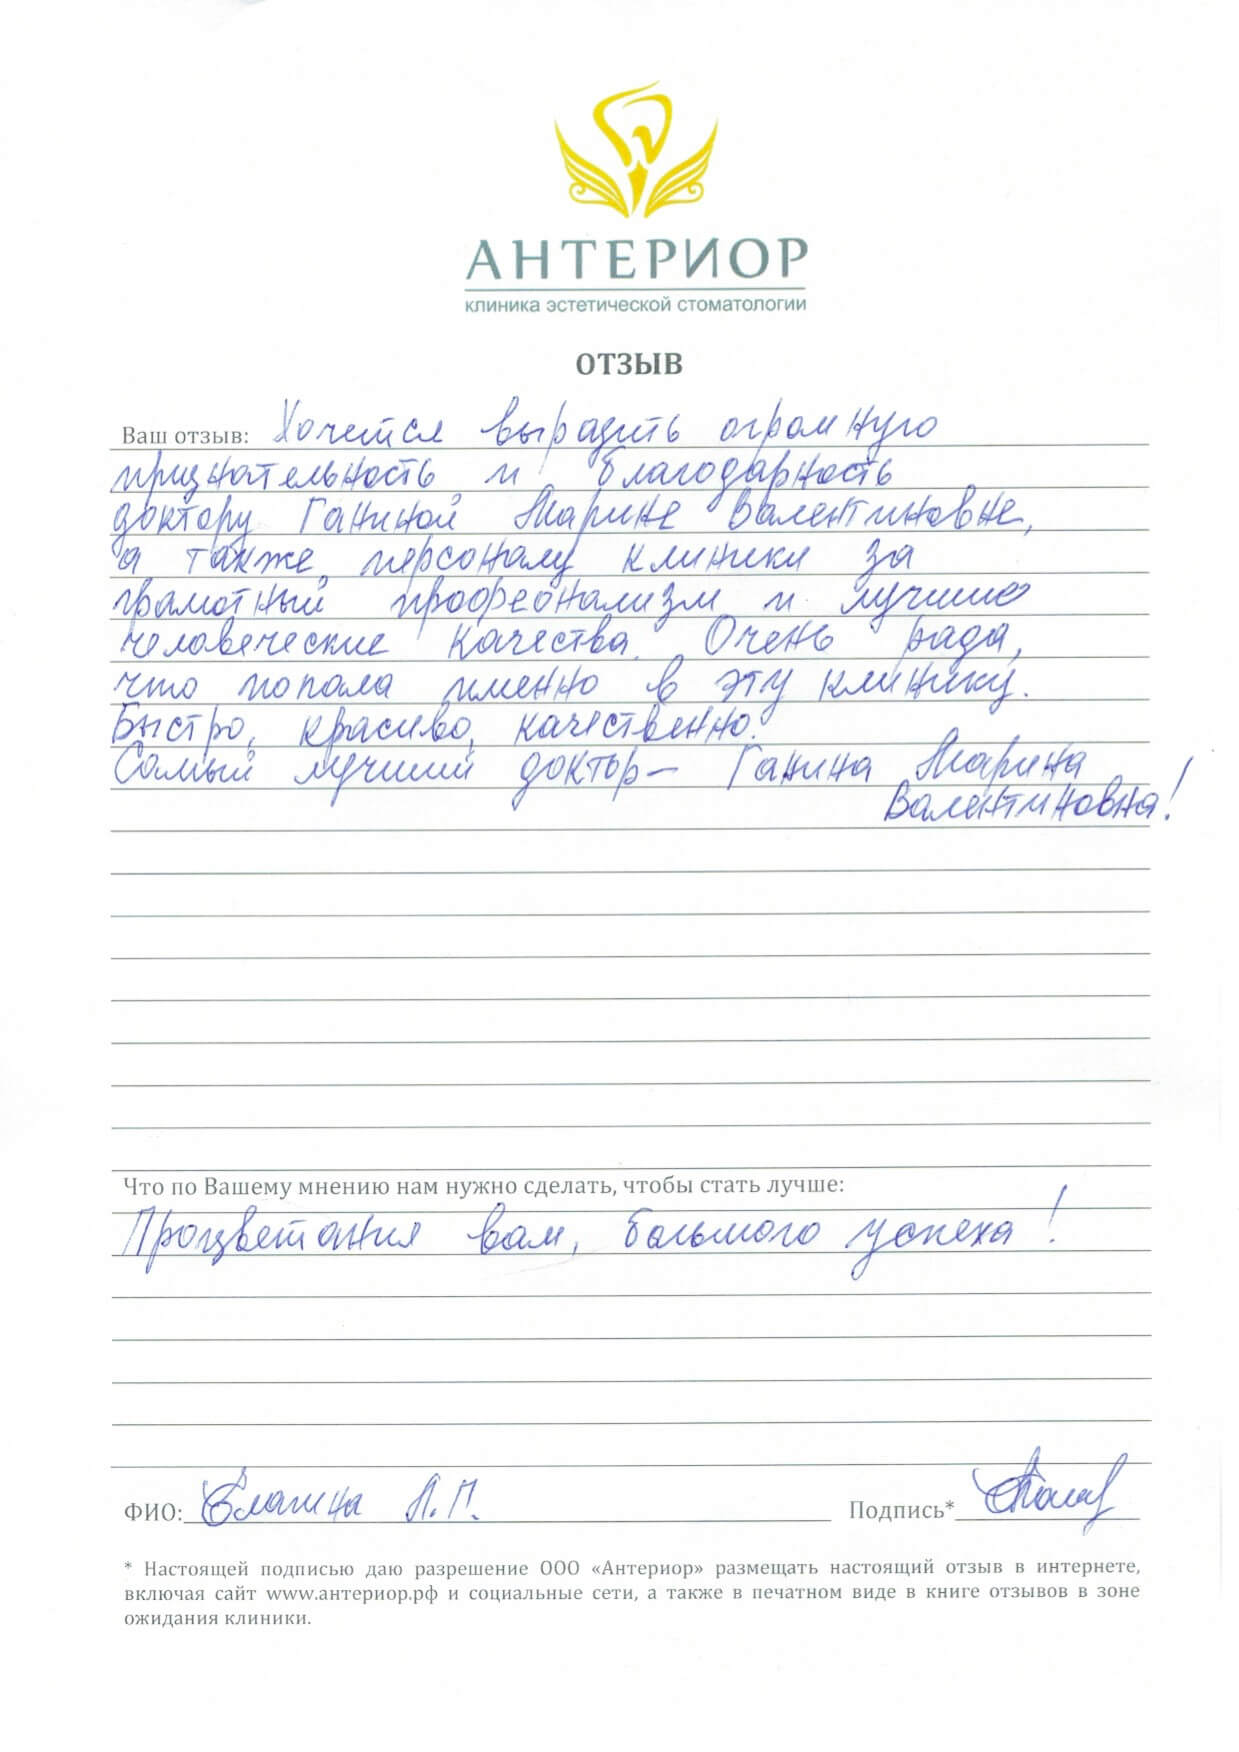 АНТЕРИОР
клиника эстетической стоматологии
ОТЗЫВ
Ваш отзыв: Хочется выразить огромную
признательность и благодарность
доктору Ганиной Марине Валентиновне,
а также персоналу клиники за
грамотный профеонализм и лучшие
человеческие качества. Очень рада,
что попала именно в эту клинику.
Быстро, красиво, качественно.
Самый лучший доктор – Ганина Марина
Валентиновна!
Что по Вашему мнению нам нужно сделать, чтобы стать лучше:
Процветания вам, большого успеха!
ФИО: Л.П. Подпись*
* Настоящей подписью даю разрешение ООО «Антериор» размещать настоящий отзыв в интернете,
включая сайт www.антериор.рф и социальные сети, а также в печатном виде в книге отзывов в зоне
ожидания клиники.